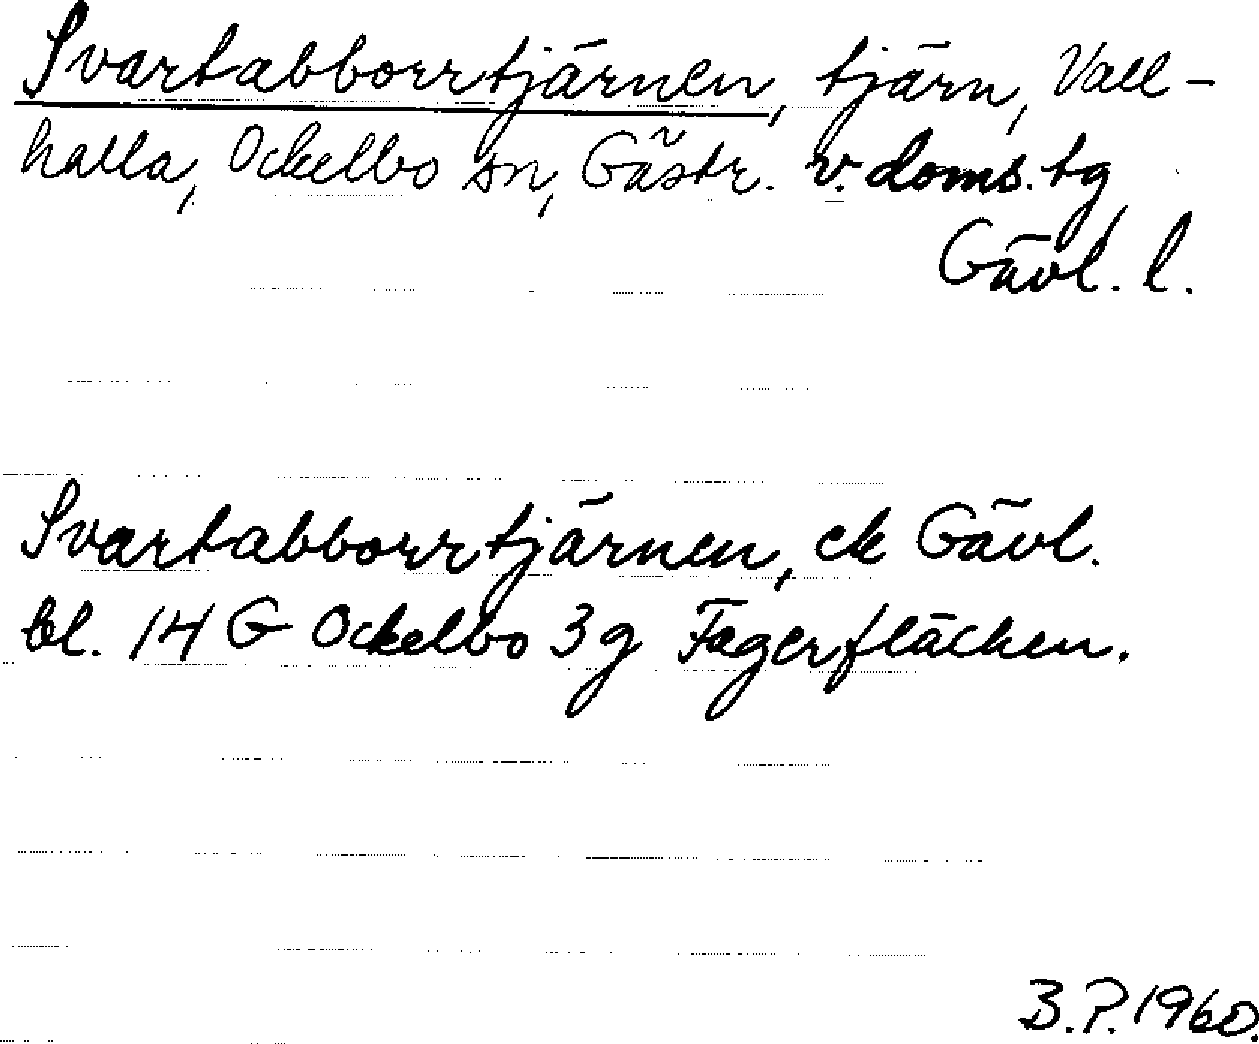 Svartabborrtjärnen, tjärn, Vall-
halla, Ockelbo sn, Gästr. v. doms. tg
Gävl. l.
Svartabborrtjärnen, ek Gävl.
bl. 14 G Ockelbo 3 g Fagerfläcken.
B.P. 1960.